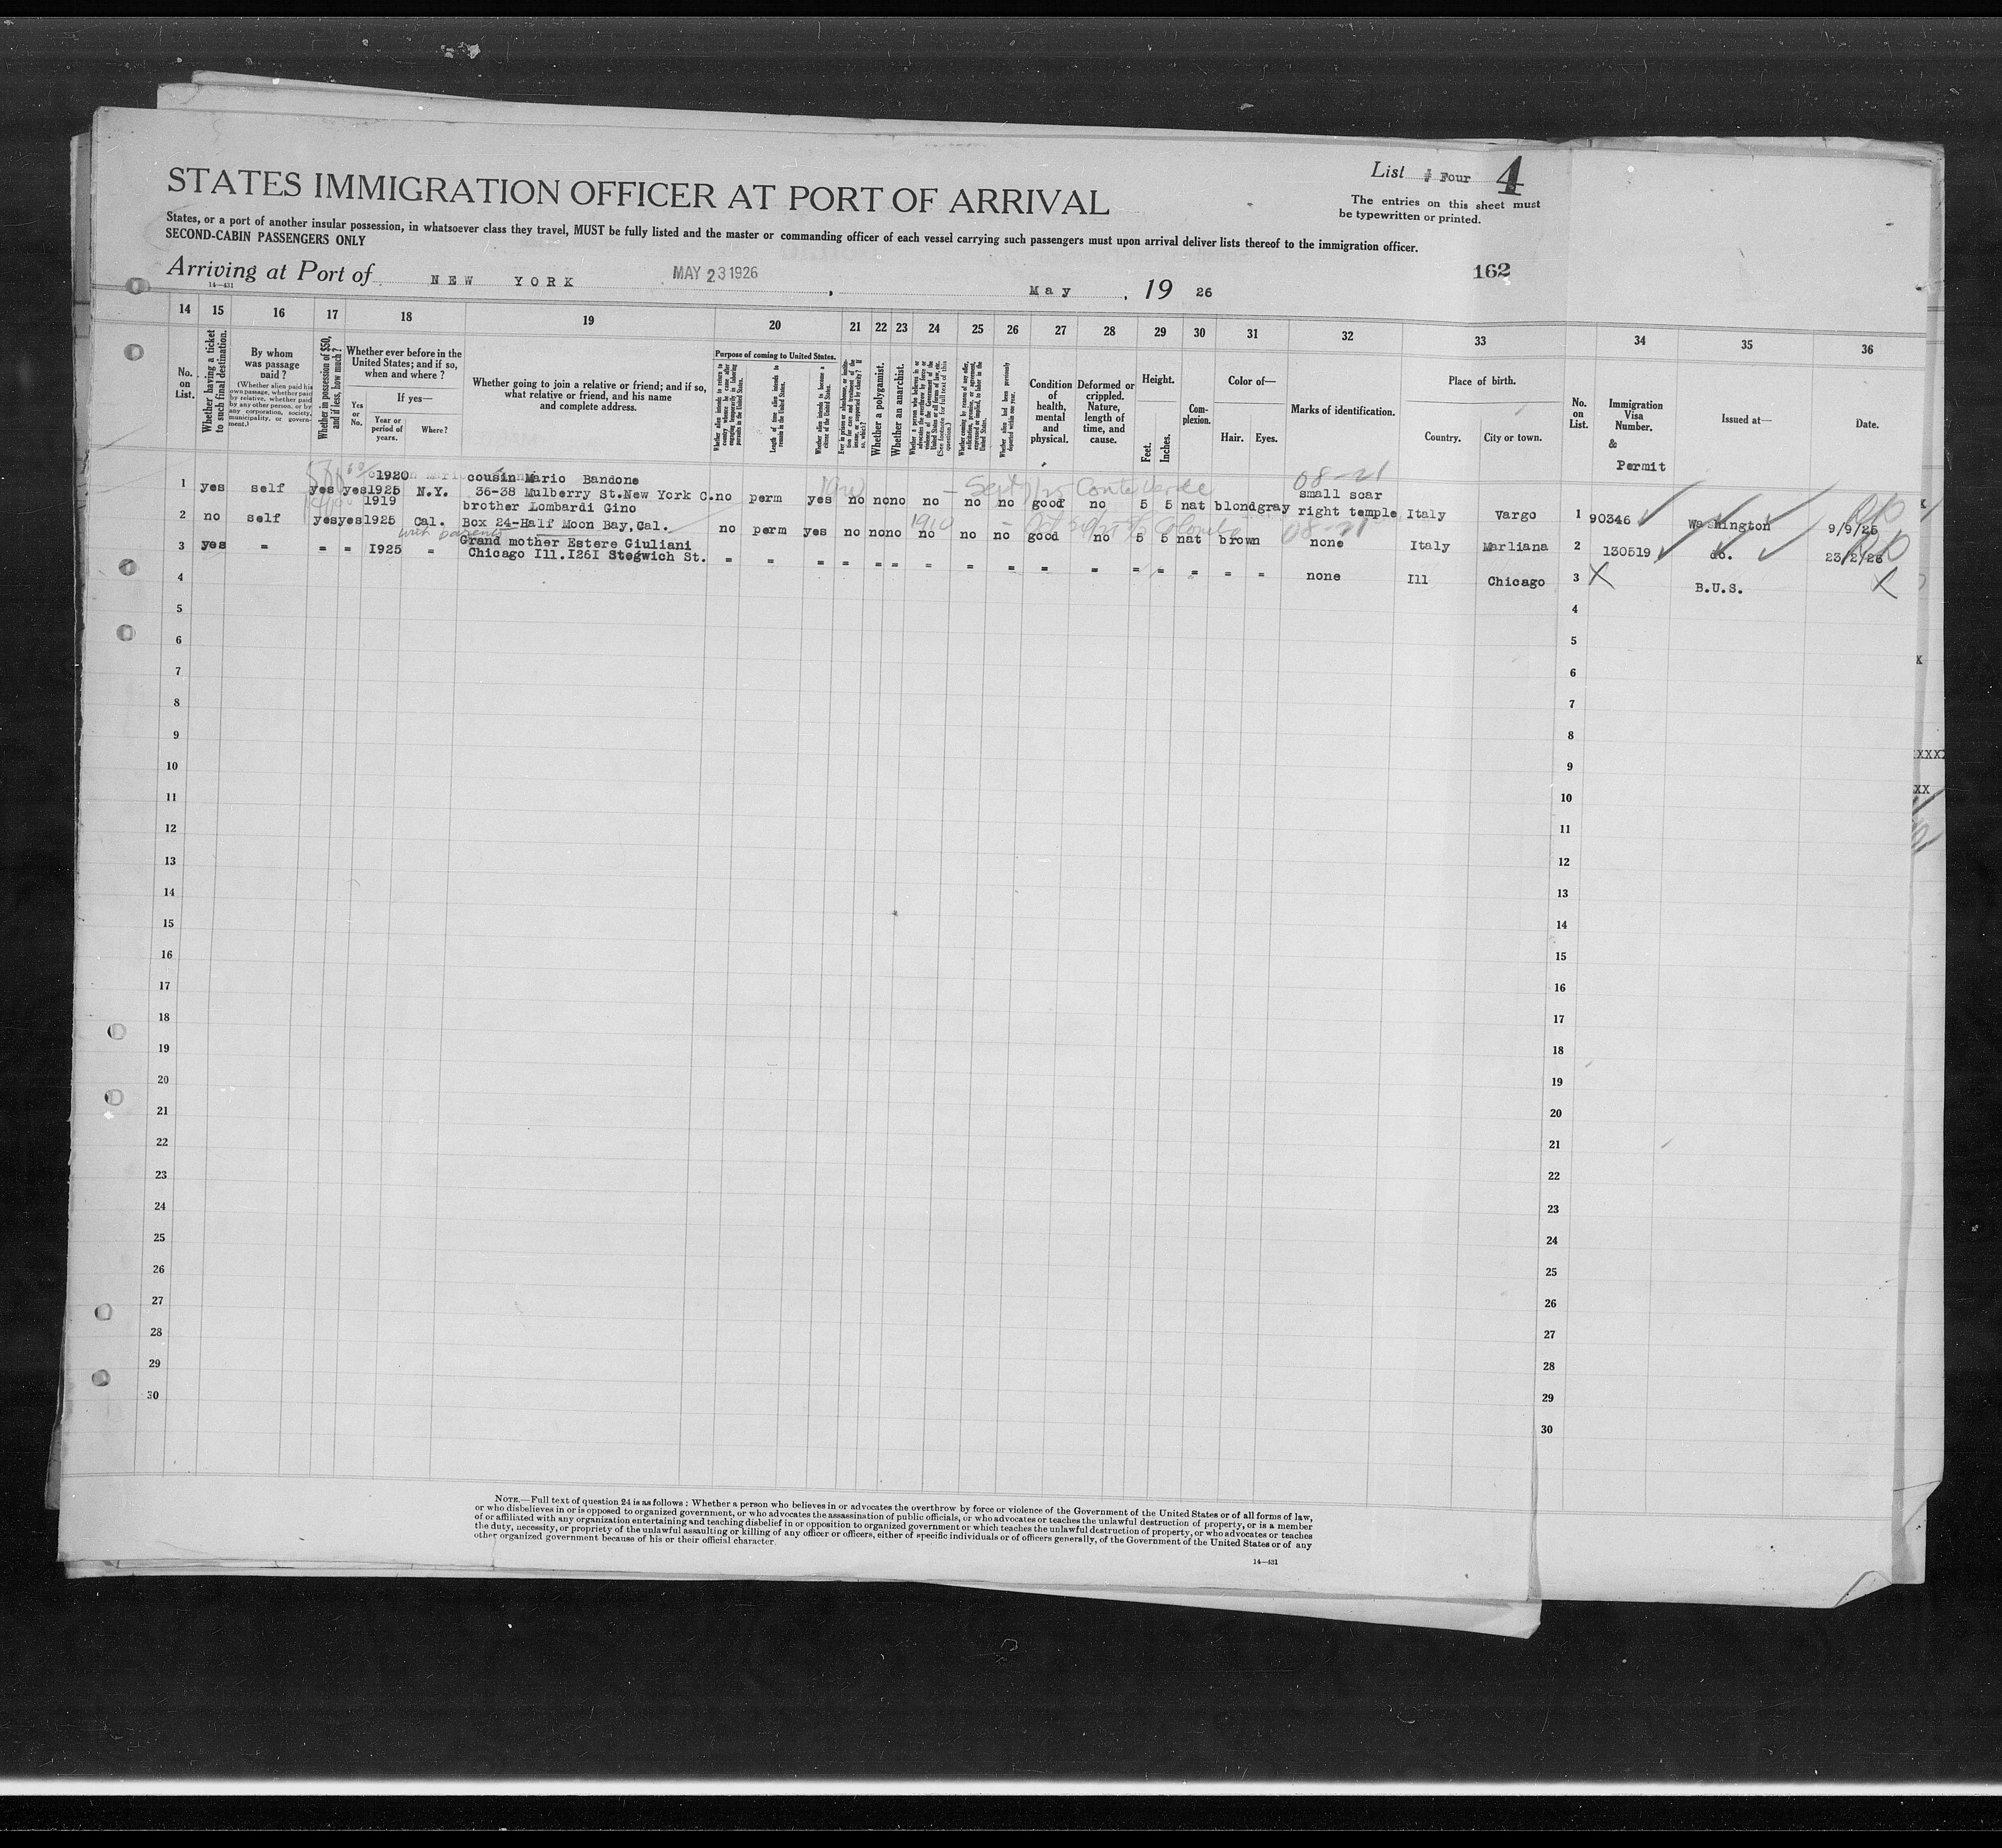 STATES IMMIGRATION OFFICER AT PORT OF ARRIVAL
List # Four 4
The entries on this sheet must
be typewritten or printed.
States, or a port of another insular possession, in whatsoever class they travel, MUST be fully listed and the master or commanding officer of each vessel carrying such passengers must upon arrival deliver lists thereof to the immigration officer.
SECOND-CABIN PASSENGERS ONLY
Arriving at Port of NEW YORK MAY 23 1926 , May , 19 26
162
14—431
14 15 16 17 18 19 20 21 22 23 24 25 26 27 28 29 30 31 32 33 34 35 36
No. on List.
Whether having a ticket to such final destination.
By whom was passage paid?
(Whether alien paid his own passage, whether paid by relative, whether paid by any other person, or by any corporation, society, municipality, or government.)
Whether in possession of $50, and if less, how much?
Whether ever before in the United States; and if so, when and where?
Yes or No.
If yes—
Year or period of years.
Where?
Whether going to join a relative or friend; and if so, what relative or friend, and his name and complete address.
Purpose of coming to United States.
Length of time alien intends to remain in the United States.
Whether alien intends to become a citizen of the United States.
Whether a polygamist.
Whether an anarchist.
Whether alien had been previously deported within one year.
Condition of health, mental and physical.
Deformed or crippled. Nature, length of time, and cause.
Height.
Feet.
Inches.
Complexion.
Color of—
Hair.
Eyes.
Marks of identification.
Place of birth.
Country.
City or town.
No. on List.
Immigration Visa Number.
& Permit
Issued at—
Date.
08-21
1920 cousin Mario Bandone
1 yes self yes yes 1925 N.Y. 36-38 Mulberry St.New York C. no perm yes no no no no no no good no 5 5 nat blond gray small scar right temple Italy Vargo 1 90346 Washington 9/9/25
1919 brother Lombardi Gino
2 no self yes yes 1925 Cal. Box 24-Half Moon Bay,Cal. no perm yes no no no no no no good no 5 5 nat brown none Italy Marliana 2 130519 do. 23/2/26
with parents
Grand mother Estere Giuliani
3 yes = = = 1925 = Chicago Ill.1261 Stegwich St. = = = = = = = = = = = = = = = = none Ill Chicago 3 X B.U.S. X
4 4
5 5
6 6
7 7
8 8
9 9
10 10
11 11
12 12
13 13
14 14
15 15
16 16
17 17
18 18
19 19
20 20
21 21
22 22
23 23
24 24
25 25
26 26
27 27
28 28
29 29
30 30
NOTE.—Full text of question 24 is as follows: Whether a person who believes in or advocates the overthrow by force or violence of the Government of the United States or of all forms of law,
or who disbelieves in or is opposed to organized government, or who advocates the assassination of public officials, or who advocates or teaches the unlawful destruction of property, or is a member
of or affiliated with any organization entertaining and teaching disbelief in or opposition to organized government or which teaches the unlawful destruction of property, or who advocates or teaches
the duty, necessity, or propriety of the unlawful assaulting or killing of any officer or officers, either of specific individuals or of officers generally, of the Government of the United States or of any
other organized government because of his or their official character.
14—431